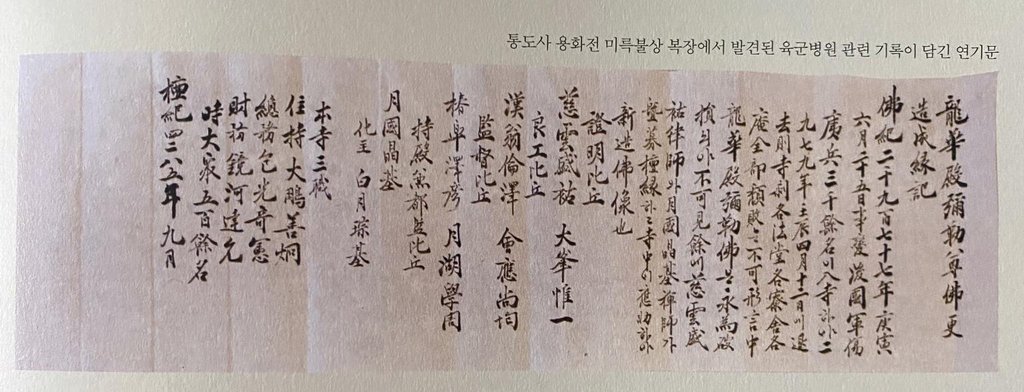 통도사 용화전 미륵불상 복장에서 발견된 육군병원 관련 기록이 담긴 연기문
龍華殿彌勒尊佛更
造成緣記
佛紀二千九百七十七年庚寅
六月二十五日事變後國軍傷
兵三千餘名이入寺하야二
九七九年壬辰四月十二日에退
去則寺刹各法堂各寮舍各
庵全部頹敗는不可形言中
龍華殿彌勒佛은永爲破
損되야不可見餘이慈雲盛
祐律師와月國晶基禪師가
募檀緣하고寺中이應助하야
新造佛像也
證明比丘
慈雲盛祐 大峯惟一
良工比丘
漢翁倫澤 會應尚均
監督比丘
椿皐澤彦 月湖學周
持殿兼都監比丘
月國晶基
化主 白月琮基
本寺三職
住持大鵬善炯
總務包光奇憲
財務鏡河達允
時大衆五百餘名
檀紀四二八五年 九月